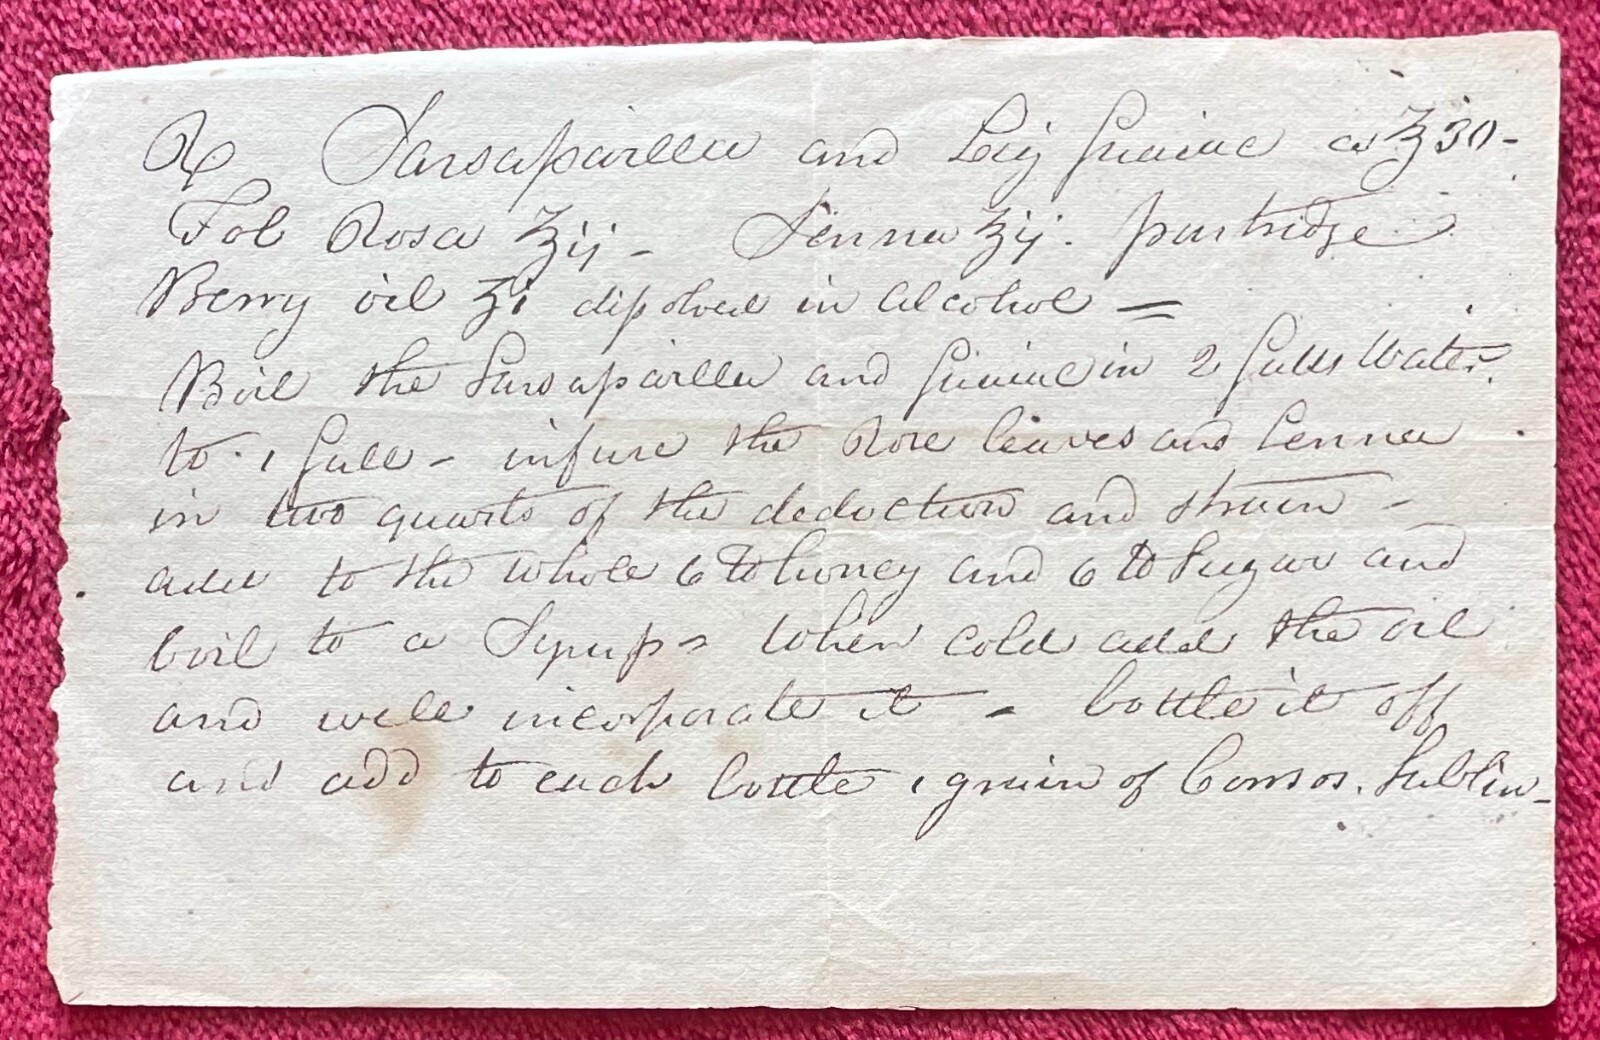 ℞ Sarsaparilla and Lig Guiaic a ℥30-
Fol Rosa ℥ij - Senna ℥ij. partridge
Berry oil ʒi dissolved in alcohol =
Boil the Sarsaparilla and Guiaic in 2 Galls Water.
to 1 Gall - infuse the Rose leaves and Senna
in two quarts of the decoction and strain -
add to the whole 6 ℔ honey and 6 ℔ Sugar and
boil to a Syrup - When cold add the oil
and well incorporate it - bottle it off
and add to each bottle 1 grain of Corros. Sublim-